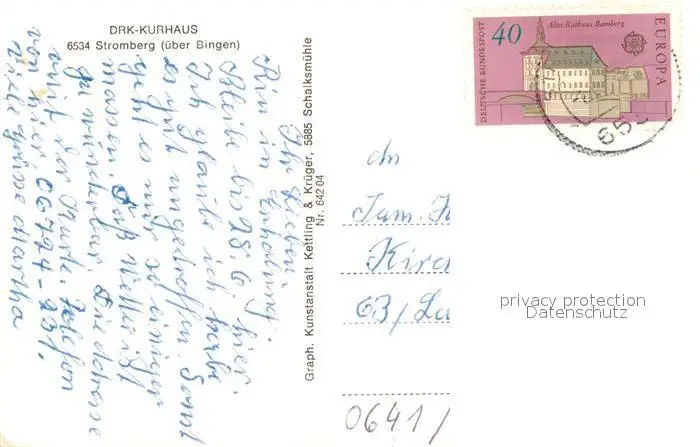 DRK-KURHAUS
6534 Stromberg (über Bingen)
Ihr Lieben!
Bin in Erholung.
Bleibe bis 28.6. hier.
Ich glaube ich habe
es gut angetroffen. Sonst
geht es mir so einiger
massen. Das Wetter ist
ja wunderbar. Die Adresse
auf der Karte. Telefon
von hier 06724-
viele Grüsse Martha
Graph. Kunstanstalt Kettling & Krüger, 5885 Schalksmühle
Nr. 642 04
DEUTSCHE BUNDESPOST
40
Altes Rathaus Bamberg
EUROPA
65
An
Fam.
63/
0641/
privacy protection
Datenschutz